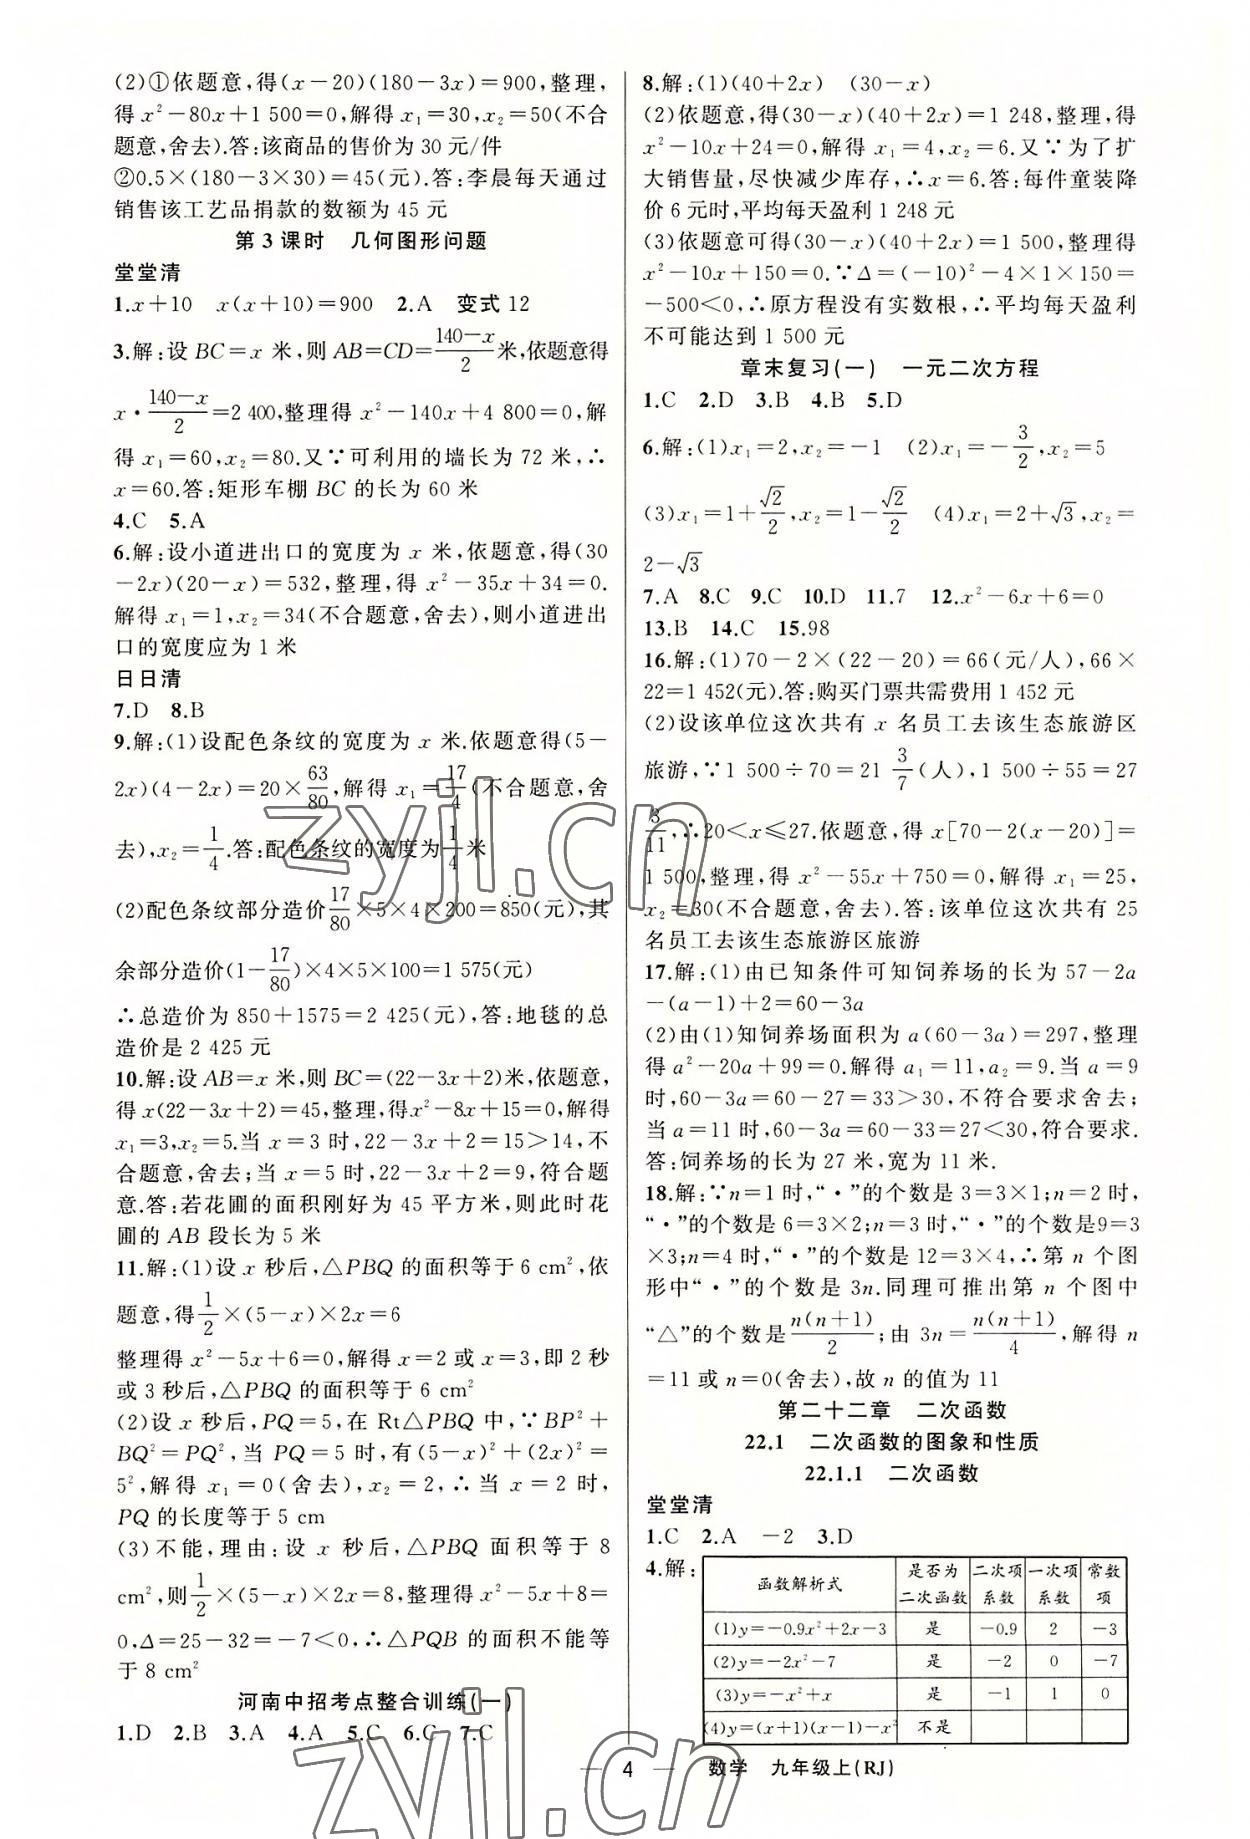 (2)①依题意,得(x-20)(180-3x)=900,整理,
得 x²-80x+1 500=0,解得 x₁=30,x₂=50(不合
题意,舍去).答:该商品的售价为 30 元/件
②0.5×(180-3×30)=45(元).答:李晨每天通过
销售该工艺品捐款的数额为 45 元
第 3 课时 几何图形问题
堂堂清
1.x+10 x(x+10)=900 2.A 变式 12
3.解:设 BC=x 米,则 AB=CD=(140-x)/2米,依题意得
x·(140-x)/2=2 400,整理得 x²-140x+4 800=0,解
得 x₁=60,x₂=80.又∵可利用的墙长为 72 米,∴
x=60.答:矩形车棚 BC 的长为 60 米
4.C 5.A
6.解:设小道进出口的宽度为 x 米,依题意,得(30
-2x)(20-x)=532,整理,得 x²-35x+34=0.
解得 x₁=1,x₂=34(不合题意,舍去),则小道进出
口的宽度应为 1 米
日日清
7.D 8.B
9.解:(1)设配色条纹的宽度为 x 米.依题意得(5-
2x)(4-2x)=20×63/80,解得 x₁=17/4(不合题意,舍
去),x₂=1/4.答:配色条纹的宽度为1/4米
(2)配色条纹部分造价17/80×5×4×200=850(元),其
余部分造价(1-17/80)×4×5×100=1 575(元)
∴总造价为 850+1575=2 425(元),答:地毯的总
造价是 2 425 元
10.解:设 AB=x 米,则 BC=(22-3x+2)米,依题意,
得 x(22-3x+2)=45,整理,得x²-8x+15=0,解得
x₁=3,x₂=5.当 x=3 时,22-3x+2=15>14,不
合题意,舍去;当 x=5 时,22-3x+2=9,符合题
意.答:若花圃的面积刚好为 45 平方米,则此时花
圃的 AB 段长为 5 米
11.解:(1)设 x 秒后,△PBQ 的面积等于 6 cm²,依
题意,得1/2×(5-x)×2x=6
整理得 x²-5x+6=0,解得 x=2 或 x=3,即 2 秒
或 3 秒后,△PBQ 的面积等于 6 cm²
(2)设 x 秒后,PQ=5,在 Rt△PBQ 中,∵BP²+
BQ²=PQ²,当 PQ=5 时,有(5-x)²+(2x)²=
5²,解得 x₁=0(舍去),x₂=2,∴当 x=2 时,
PQ 的长度等于 5 cm
(3)不能,理由:设 x 秒后,△PBQ 面积等于 8
cm²,则1/2×(5-x)×2x=8,整理得 x²-5x+8=
0,Δ=25-32=-7<0,∴△PQB 的面积不能等
于 8 cm²
河南中招考点整合训练(一)
1.D 2.B 3.A 4.A 5.C 6.C 7.C
8.解:(1)(40+2x) (30-x)
(2)依题意,得(30-x)(40+2x)=1 248,整理,得
x²-10x+24=0,解得 x₁=4,x₂=6.又∵为了扩
大销售量,尽快减少库存,∴x=6.答:每件童装降
价 6 元时,平均每天盈利 1 248 元
(3)依题意可得(30-x)(40+2x)=1 500,整理得
x²-10x+150=0.∵Δ=(-10)²-4×1×150=
-500<0,∴原方程没有实数根,∴平均每天盈利
不可能达到 1 500 元
章末复习(一) 一元二次方程
1.C 2.D 3.B 4.B 5.D
6.解:(1)x₁=2,x₂=-1 (2)x₁=-3/2,x₂=5
(3)x₁=1+√2/2,x₂=1-√2/2 (4)x₁=2+√3,x₂=
2-√3
7.A 8.C 9.C 10.D 11.7 12.x²-6x+6=0
13.B 14.C 15.98
16.解:(1)70-2×(22-20)=66(元/人),66×
22=1 452(元).答:购买门票共需费用 1 452 元
(2)设该单位这次共有 x 名员工去该生态旅游区
旅游,∵1 500÷70=21 3/7(人),1 500÷55=27
3/11,∴20<x≤27.依题意,得 x[70-2(x-20)]=
1 500,整理,得 x²-55x+750=0,解得 x₁=25,
x₂=30(不合题意,舍去).答:该单位这次共有 25
名员工去该生态旅游区旅游
17.解:(1)由已知条件可知饲养场的长为 57-2a
-(a-1)+2=60-3a
(2)由(1)知饲养场面积为 a(60-3a)=297,整理
得 a²-20a+99=0.解得 a₁=11,a₂=9.当 a=9
时,60-3a=60-27=33>30,不符合要求舍去;
当 a=11 时,60-3a=60-33=27<30,符合要求.
答:饲养场的长为 27 米,宽为 11 米.
18.解:∵n=1 时,“·”的个数是 3=3×1;n=2 时,
“·”的个数是 6=3×2;n=3 时,“·”的个数是9=3
×3;n=4 时,“·”的个数是 12=3×4,∴第 n 个图
形中“·”的个数是 3n.同理可推出第 n 个图中
“△”的个数是n(n+1)/2;由 3n=n(n+1)/4,解得 n
=11 或 n=0(舍去),故 n 的值为 11
第二十二章 二次函数
22.1 二次函数的图象和性质
22.1.1 二次函数
堂堂清
1.C 2.A -2 3.D
4.解:
函数解析式 是否为二次函数 二次项系数 一次项系数 常数项
(1)y=-0.9x²+2x-3 是 -0.9 2 -3
(2)y=-2x²-7 是 -2 0 -7
(3)y=-x²+x 是 -1 1 0
(4)y=(x+1)(x-1)-x² 不是
4 数学 九年级上(RJ)
zyjl.cn
zyjl.cn